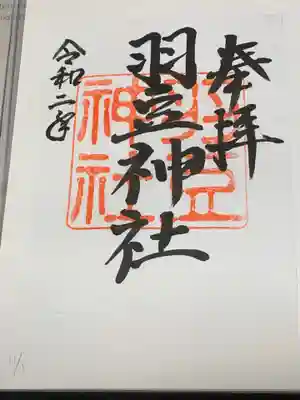 奉拝
羽豆神社
羽豆神社
令和二年